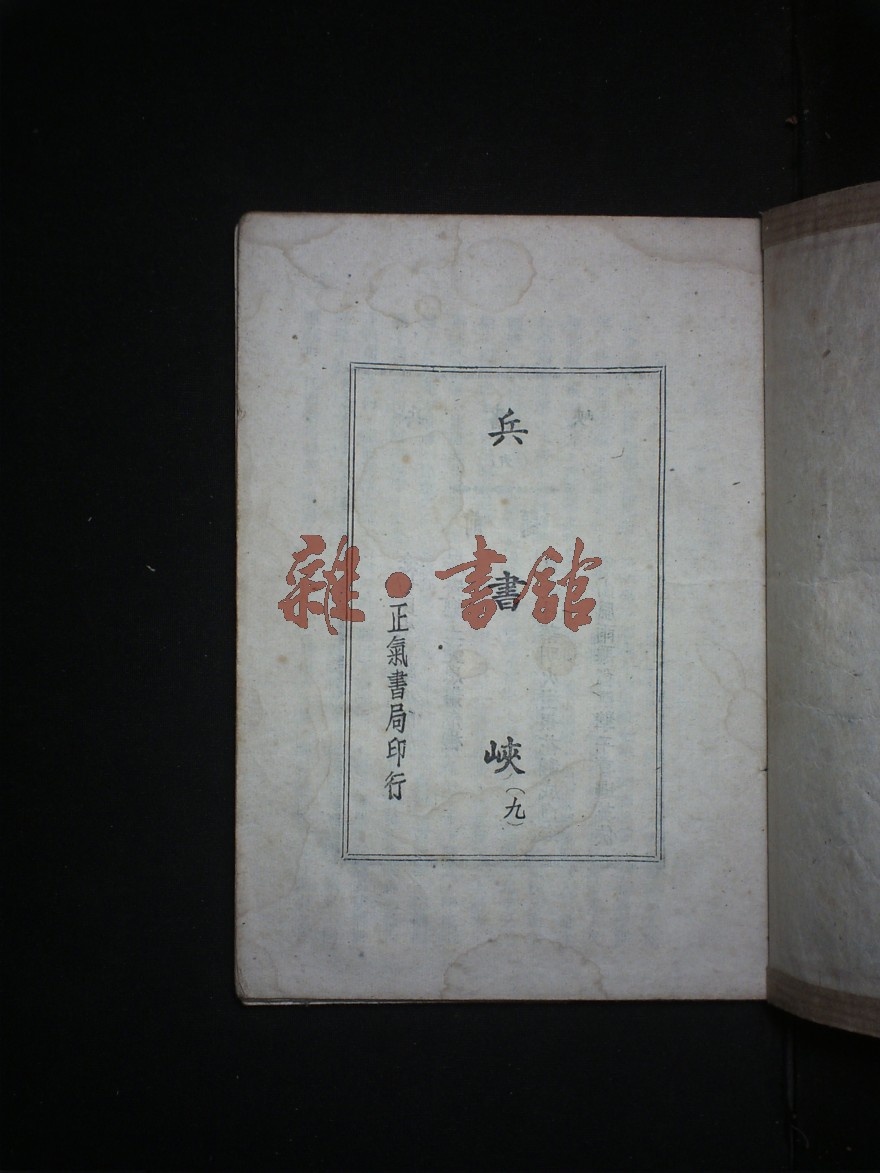 兵書峽(九)
正氣書局印行
雜·書館